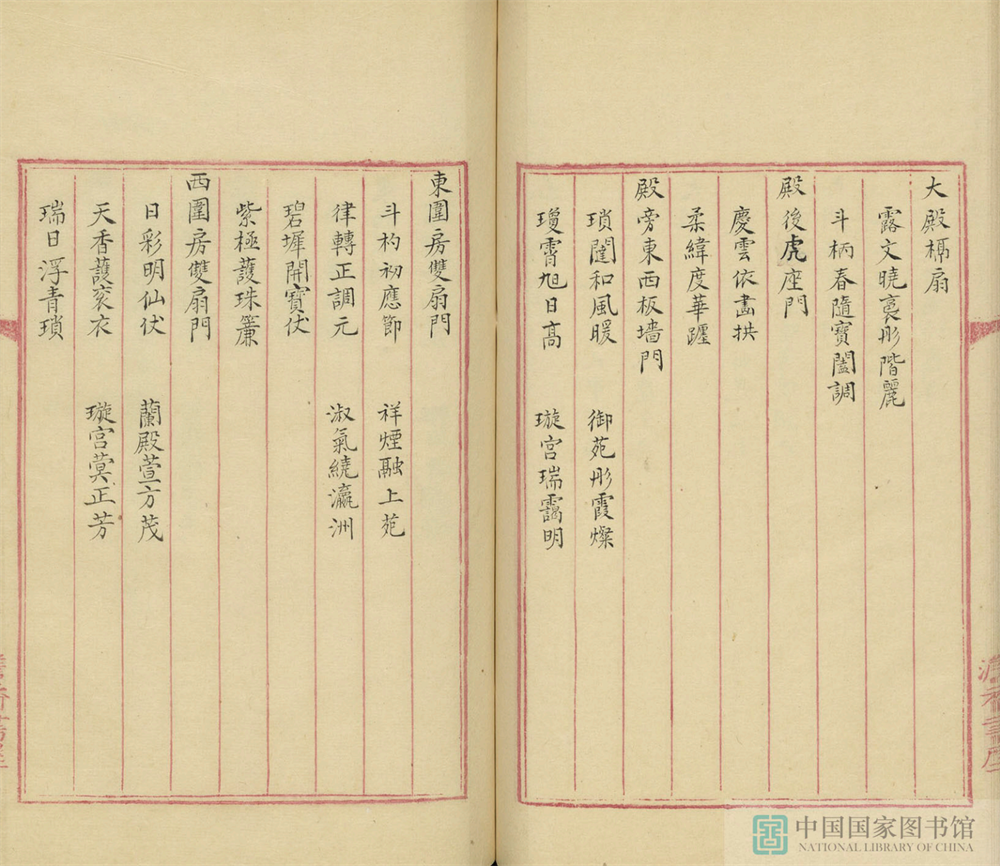 大殿槅扇
露文曉裛彤階麗
斗柄春隨寶闔調
殿後虎座門
慶雲依畫拱
柔緯度華躔
殿旁東西板墻門
瑣闈和風暖　御苑彤霞燦
瓊霄旭日高　璇宮瑞靄明
東圍房雙扇門
斗杓初應節　祥煙融上苑
律轉正調元　淑氣繞瀛洲
碧墀開寶仗
紫極護珠簾
西圍房雙扇門
日彩明仙仗　蘭殿萱方茂
天香護袞衣　璇宮蓂正芳
瑞日浮青瑣
中国国家图书馆
NATIONAL LIBRARY OF CHINA